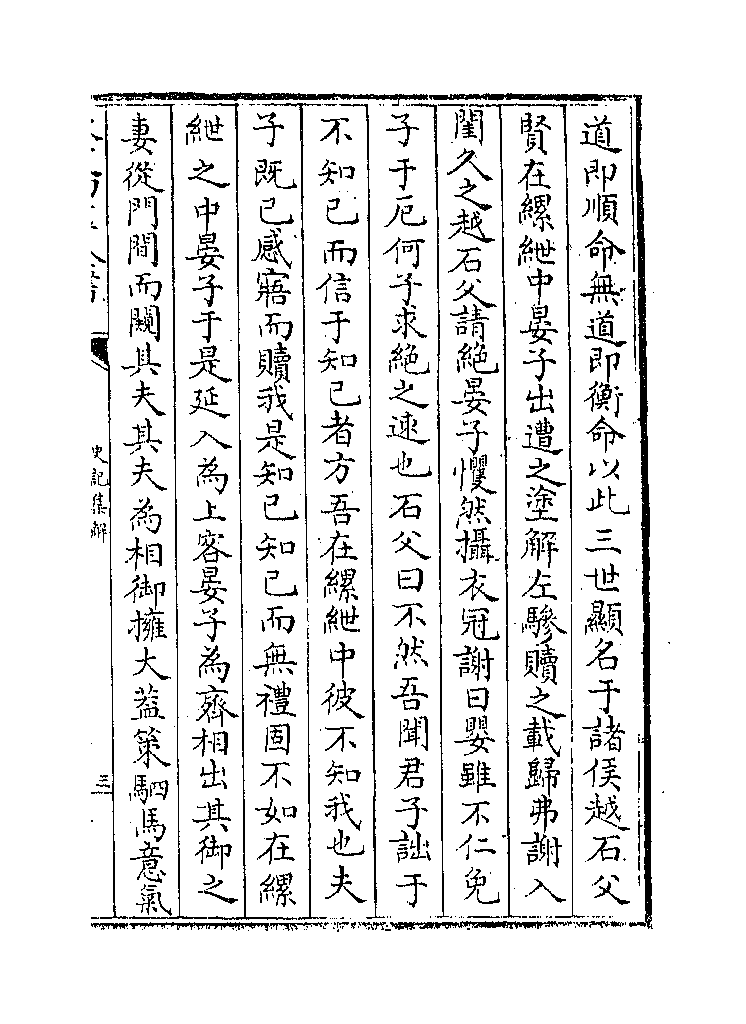 道即順命無道即衡命以此三世顯名于諸侯越石父
賢在縲紲中晏子出遭之塗解左驂贖之載歸弗謝入
閨久之越石父請絶晏子戄然攝衣冠謝曰嬰雖不仁免
子于厄何子求絶之速也石父曰不然吾聞君子詘于
不知已而信于知已者方吾在縲紲中彼不知我也夫
子既已感寤而贖我是知已知已而無禮固不如在縲
紲之中晏子于是延入為上客晏子為齊相出其御之
妻從門間而闚其夫其夫為相御擁大蓋策駟馬意氣
史記集解
三